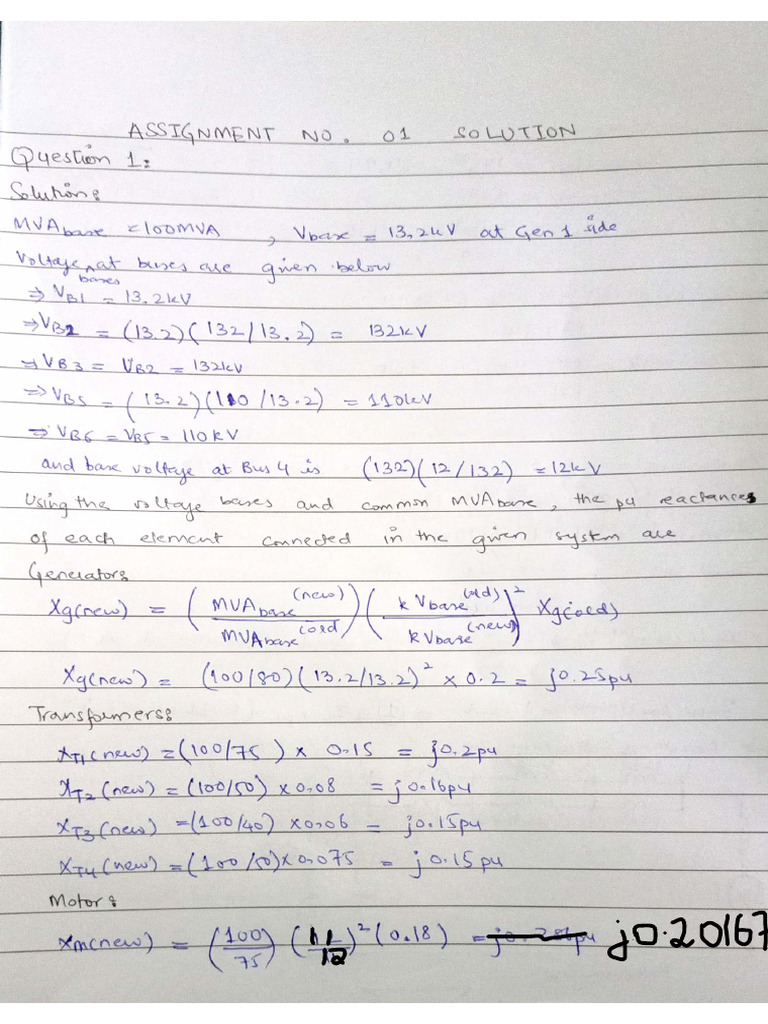 ASSIGNMENT NO. 01 SOLUTION
Question 1:
Solution:
MVAbase = 100MVA , Vbase = 13.2kV at Gen 1 side
Voltage bases at buses are given below
⇒ VB1 = 13.2kV
⇒ VB2 = (13.2)(132/13.2) = 132kV
⇒ VB3 = VB2 = 132kV
⇒ VB5 = (13.2)(110/13.2) = 110kV
⇒ VB6 = VB5 = 110kV
and base voltage at Bus 4 is (132)(12/132) = 12kV
Using the voltage bases and common MVAbase, the pu reactances
of each element connected in the given system are
Generator:
Xg(new) = (MVAbase(new)/MVAbase(old)) (kVbase(old)/kVbase(new))² Xg(old)
Xg(new) = (100/80)(13.2/13.2)² × 0.2 = j0.25pu
Transformers:
XT1(new) = (100/75) × 0.15 = j0.2pu
XT2(new) = (100/50) × 0.08 = j0.16pu
XT3(new) = (100/40) × 0.06 = j0.15pu
XT4(new) = (100/50) × 0.075 = j0.15pu
Motor:
Xm(new) = (100/75) (11/12)² (0.18) = j0.20167